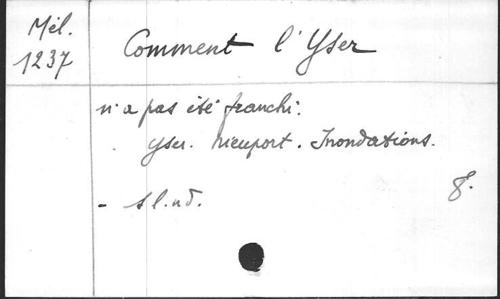 Mél.
1237
Comment l'Yser
n'a pas été franchi.
Yser. Nieuport. Inondations.
- s l. n d.
8.